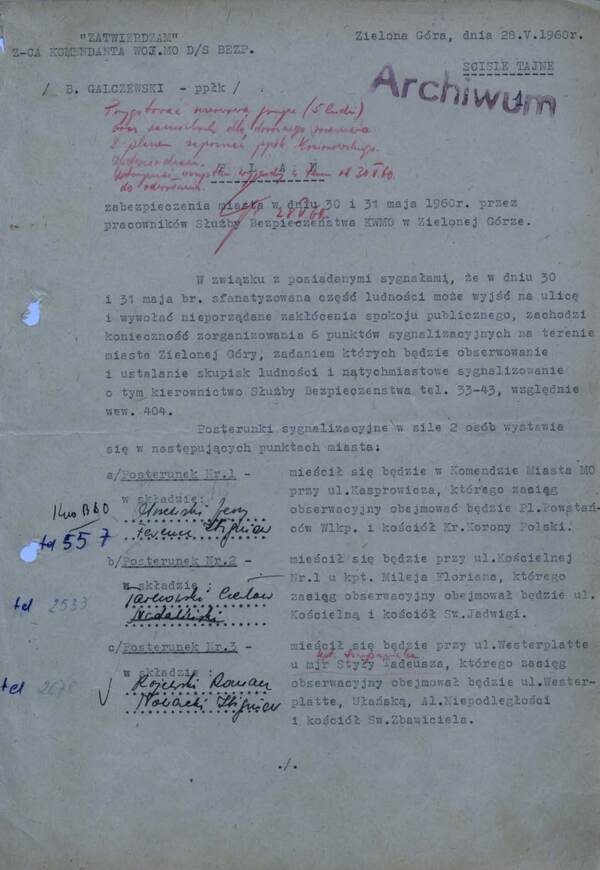 "ZATWIERDZAM"
Z-CA KOMENDANTA WOJ.MO D/S BEZP.
/ B. GALCZEWSKI - ppłk /
Zielona Góra, dnia 28.V.1960r.
SCISLE TAJNE
Archiwum
Przygotować rezerwową grupę (5 ludzi)
oraz samochody dla
Z planem zapoznać ppłk
P L A N
zabezpieczenia miasta w dniu 30 i 31 maja 1960r. przez
pracowników Służby Bezpieczeństwa KWMO w Zielonej Górze.
W związku z posiadanymi sygnałami, że w dniu 30
i 31 maja br. sfanatyzowana część ludności może wyjść na ulicę
i wywołać nieporządane zakłócenia spokoju publicznego, zachodzi
konieczność zorganizowania 6 punktów sygnalizacyjnych na terenie
miasta Zielonej Góry, zadaniem których będzie obserwowanie
i ustalanie skupisk ludności i natychmiastowe sygnalizowanie
o tym kierownictwo Służby Bezpieczenstwa tel. 33-43, względnie
wew. 404.
Posterunki sygnalizacyjne w sile 2 osób wystawia
się w następujących punktach miasta:
a/Posterunek Nr.1 -
w składzie:
tel 557
mieścił się będzie w Komendzie Miasta MO
przy ul.Kasprowicza, którego zasiąg
obserwacyjny obejmować będzie Pl.Powstań-
ców Wlkp. i kościół Kr.Korony Polski.
b/Posterunek Nr.2 -
w składzie :
tel 2533
mieścił się będzie przy ul.Kościelnej
Nr.1 u kpt. Mileja Floriana, którego
zasiąg obserwacyjny obejmował będzie ul.
Kościelną i kościół Sw.Jadwigi.
c/Posterunek Nr.3 -
w składzie :
Rojewski Roman
Nowacki Zbigniew
tel
mieścił się będzie przy ul.Westerplatte
u mjr Styły Tadeusza, którego zasiąg
obserwacyjny obejmował będzie ul.Wester-
platte, Ułańską, Al.Niepodległości
i kościół Sw.Zbawiciela.
./.